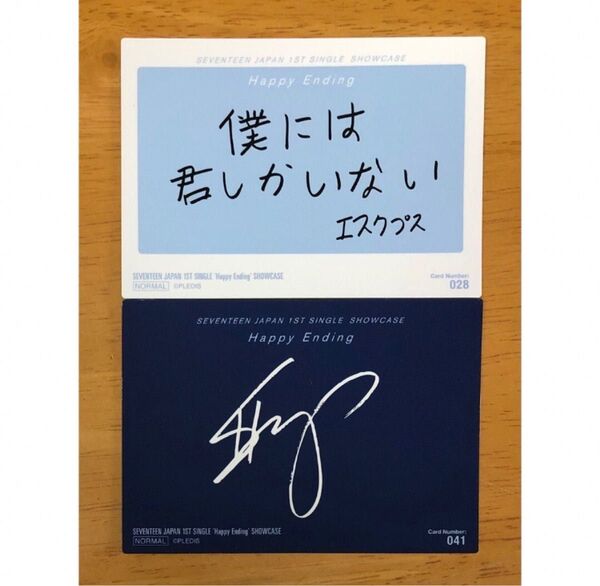 SEVENTEEN JAPAN 1ST SINGLE SHOWCASE
Happy Ending
僕には
君しかいない
エスクプス
SEVENTEEN JAPAN 1ST SINGLE 'Happy Ending' SHOWCASE
NORMAL ©PLEDIS
Card Number:
028
SEVENTEEN JAPAN 1ST SINGLE SHOWCASE
Happy Ending
SEVENTEEN JAPAN 1ST SINGLE 'Happy Ending' SHOWCASE
NORMAL ©PLEDIS
Card Number:
041